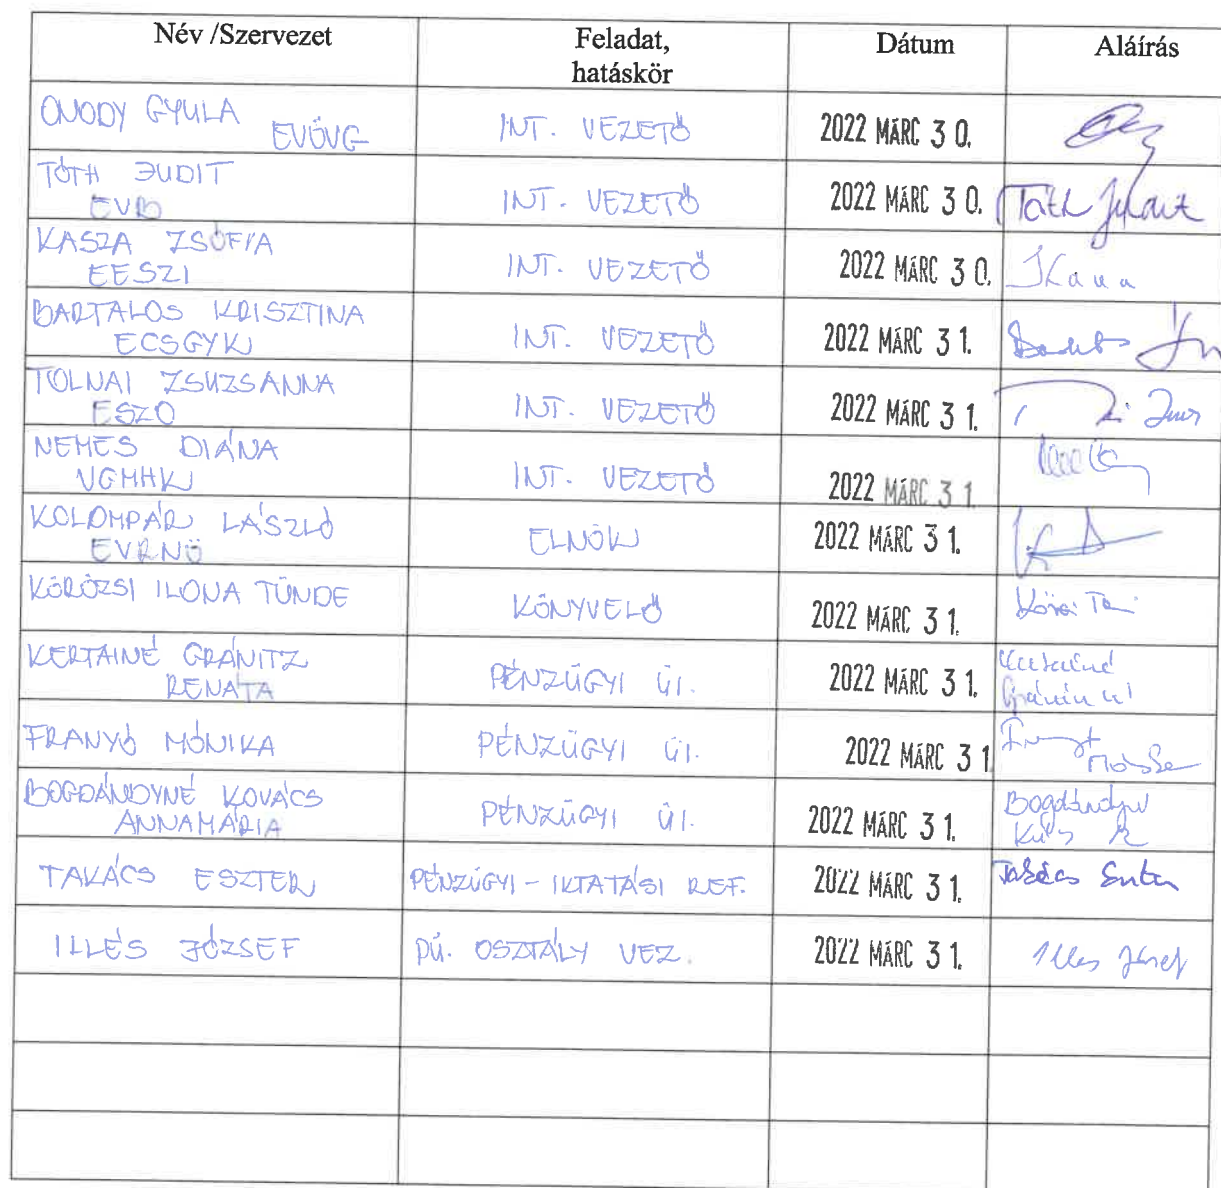 Név /Szervezet Feladat, hatáskör Dátum Aláírás
ONODY GYULA EVÖVG INT. VEZETŐ 2022 MÁRC 30.
TÓTH JUDIT INT. VEZETŐ 2022 MÁRC 30. Tóth Judit
KASZA ZSÓFIA
EESZI INT. VEZETŐ 2022 MÁRC 30.
BARTALOS KRISZTINA
ECSGYK INT. VEZETŐ 2022 MÁRC 31.
TOLNAI ZSUZSANNA
ESZO INT. VEZETŐ 2022 MÁRC 31.
NEMES DIÁNA
VGMHK INT. VEZETŐ 2022 MÁRC 31
KOLOMPÁR LÁSZLÓ
EVRNÖ ELNÖK 2022 MÁRC 31.
KÖRÖZSI ILONA TÜNDE KÖNYVELŐ 2022 MÁRC 31.
KERTAINÉ GRÁNITZ
RENÁTA PÉNZÜGYI ÜI. 2022 MÁRC 31.
FRANYÓ MÓNIKA PÉNZÜGYI ÜI. 2022 MÁRC 31
BOGDÁNDYNÉ KOVÁCS
ANNAMÁRIA PÉNZÜGYI ÜI. 2022 MÁRC 31. Bogdándyné
TAKÁCS ESZTER PÉNZÜGYI - IKTATÁSI REF. 2022 MÁRC 31. Takács Eszter
ILLÉS JÓZSEF PÜ. OSZTÁLY VEZ. 2022 MÁRC 31. Illés József